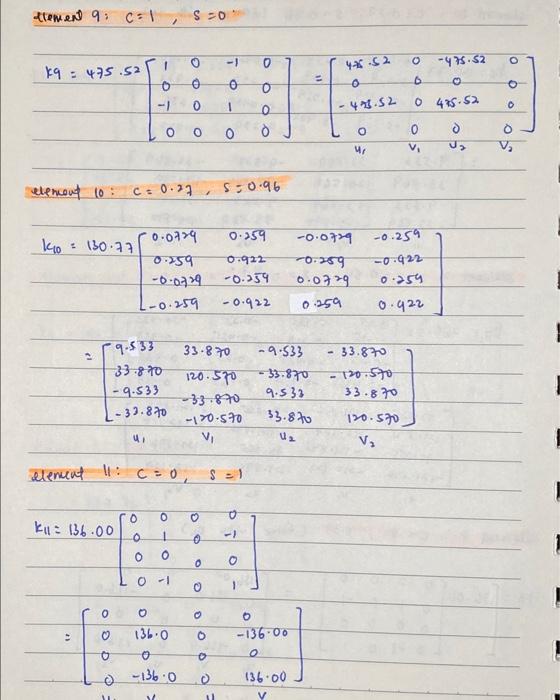 element 9: C=1, S=0
K9 = 475.52 [ 1 0 -1 0 ] = [ 475.52 0 -475.52 0 ]
[ 0 0 0 0 ] [ 0 0 0 0 ]
[ -1 0 1 0 ] [ -475.52 0 475.52 0 ]
[ 0 0 0 0 ] [ 0 0 0 0 ]
u₁ v₁ u₂ v₂
element 10: C=0.27, S=0.96
K10 = 130.77 [ 0.0729 0.259 -0.0729 -0.259 ]
[ 0.259 0.922 -0.259 -0.922 ]
[ -0.0729 -0.259 0.0729 0.259 ]
[ -0.259 -0.922 0.259 0.922 ]
= [ 9.533 33.870 -9.533 -33.870 ]
[ 33.870 120.570 -33.870 -120.570 ]
[ -9.533 -33.870 9.533 33.870 ]
[ -33.870 -120.570 33.870 120.570 ]
u₁ v₁ u₂ v₂
element 11: C=0, S=1
K11 = 136.00 [ 0 0 0 0 ]
[ 0 1 0 -1 ]
[ 0 0 0 0 ]
[ 0 -1 0 1 ]
= [ 0 0 0 0 ]
[ 0 136.0 0 -136.00 ]
[ 0 0 0 0 ]
[ 0 -136.0 0 136.00 ]